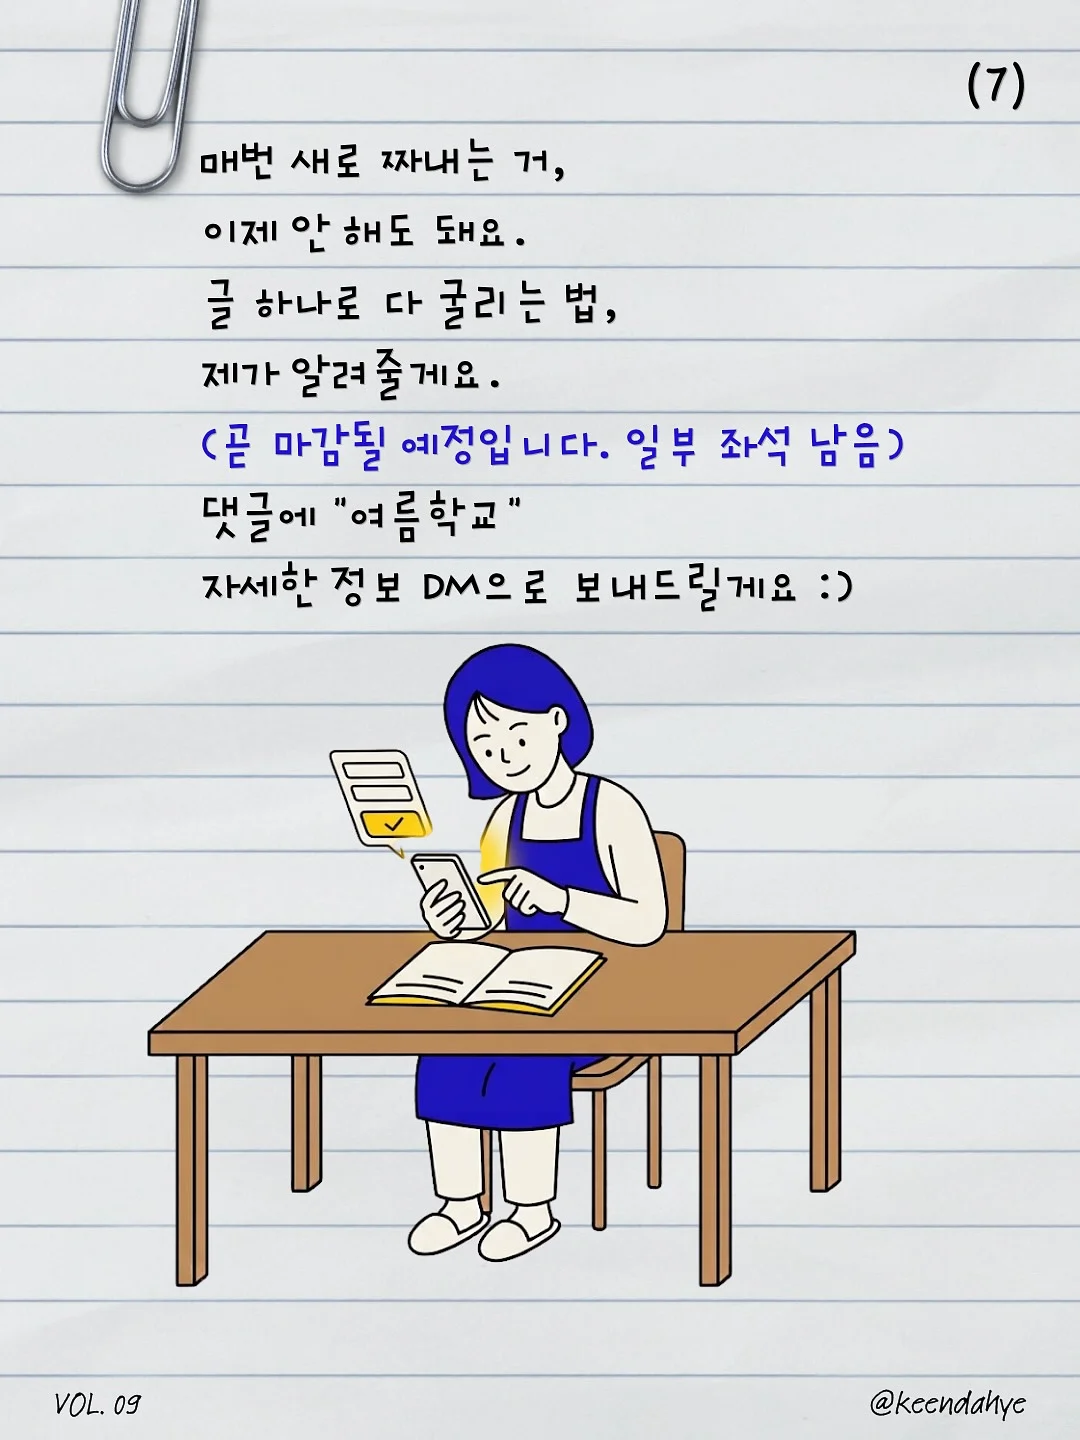 (7)
매번 새로 짜내는 거,
이제 안 해도 돼요.
글 하나로 다 굴리는 법,
제가 알려줄게요.
(곧 마감될 예정입니다. 일부 좌석 남음)
댓글에 "여름학교"
자세한 정보 DM으로 보내드릴게요 :)
VOL. 09
@keendahye